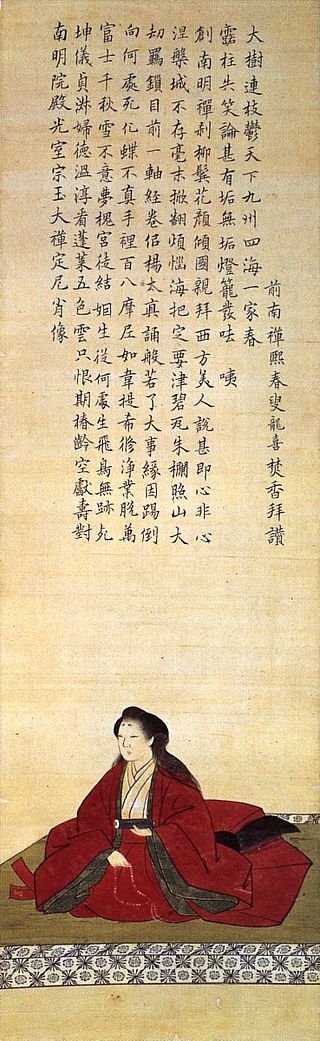 南明院殿光室宗玉大禪定尼肖像
坤儀貞淑婦德温淳看蓬萊五色雲只恨期椿齡空獻壽對
富士千秋雪不意夢槐宮徒結姻生從何處生飛鳥無跡死
向何處死化蝶不真手裡百八摩尼如韋提希修淨業脱萬
劫羈鎖目前一軸經卷侶楊太真誦般若了大事縁因踢倒
涅槃城不存毫末掀翻煩惱海把定要津碧瓦朱欄照山大
創南明禪刹柳鬢花顔傾國親拜西方美人説甚即心非心
露柱失笑論甚有垢無垢燈籠發呿 咦
大樹連枝鬱天下九州四海一家春
前南禪熙春叟龍喜焚香拜讃